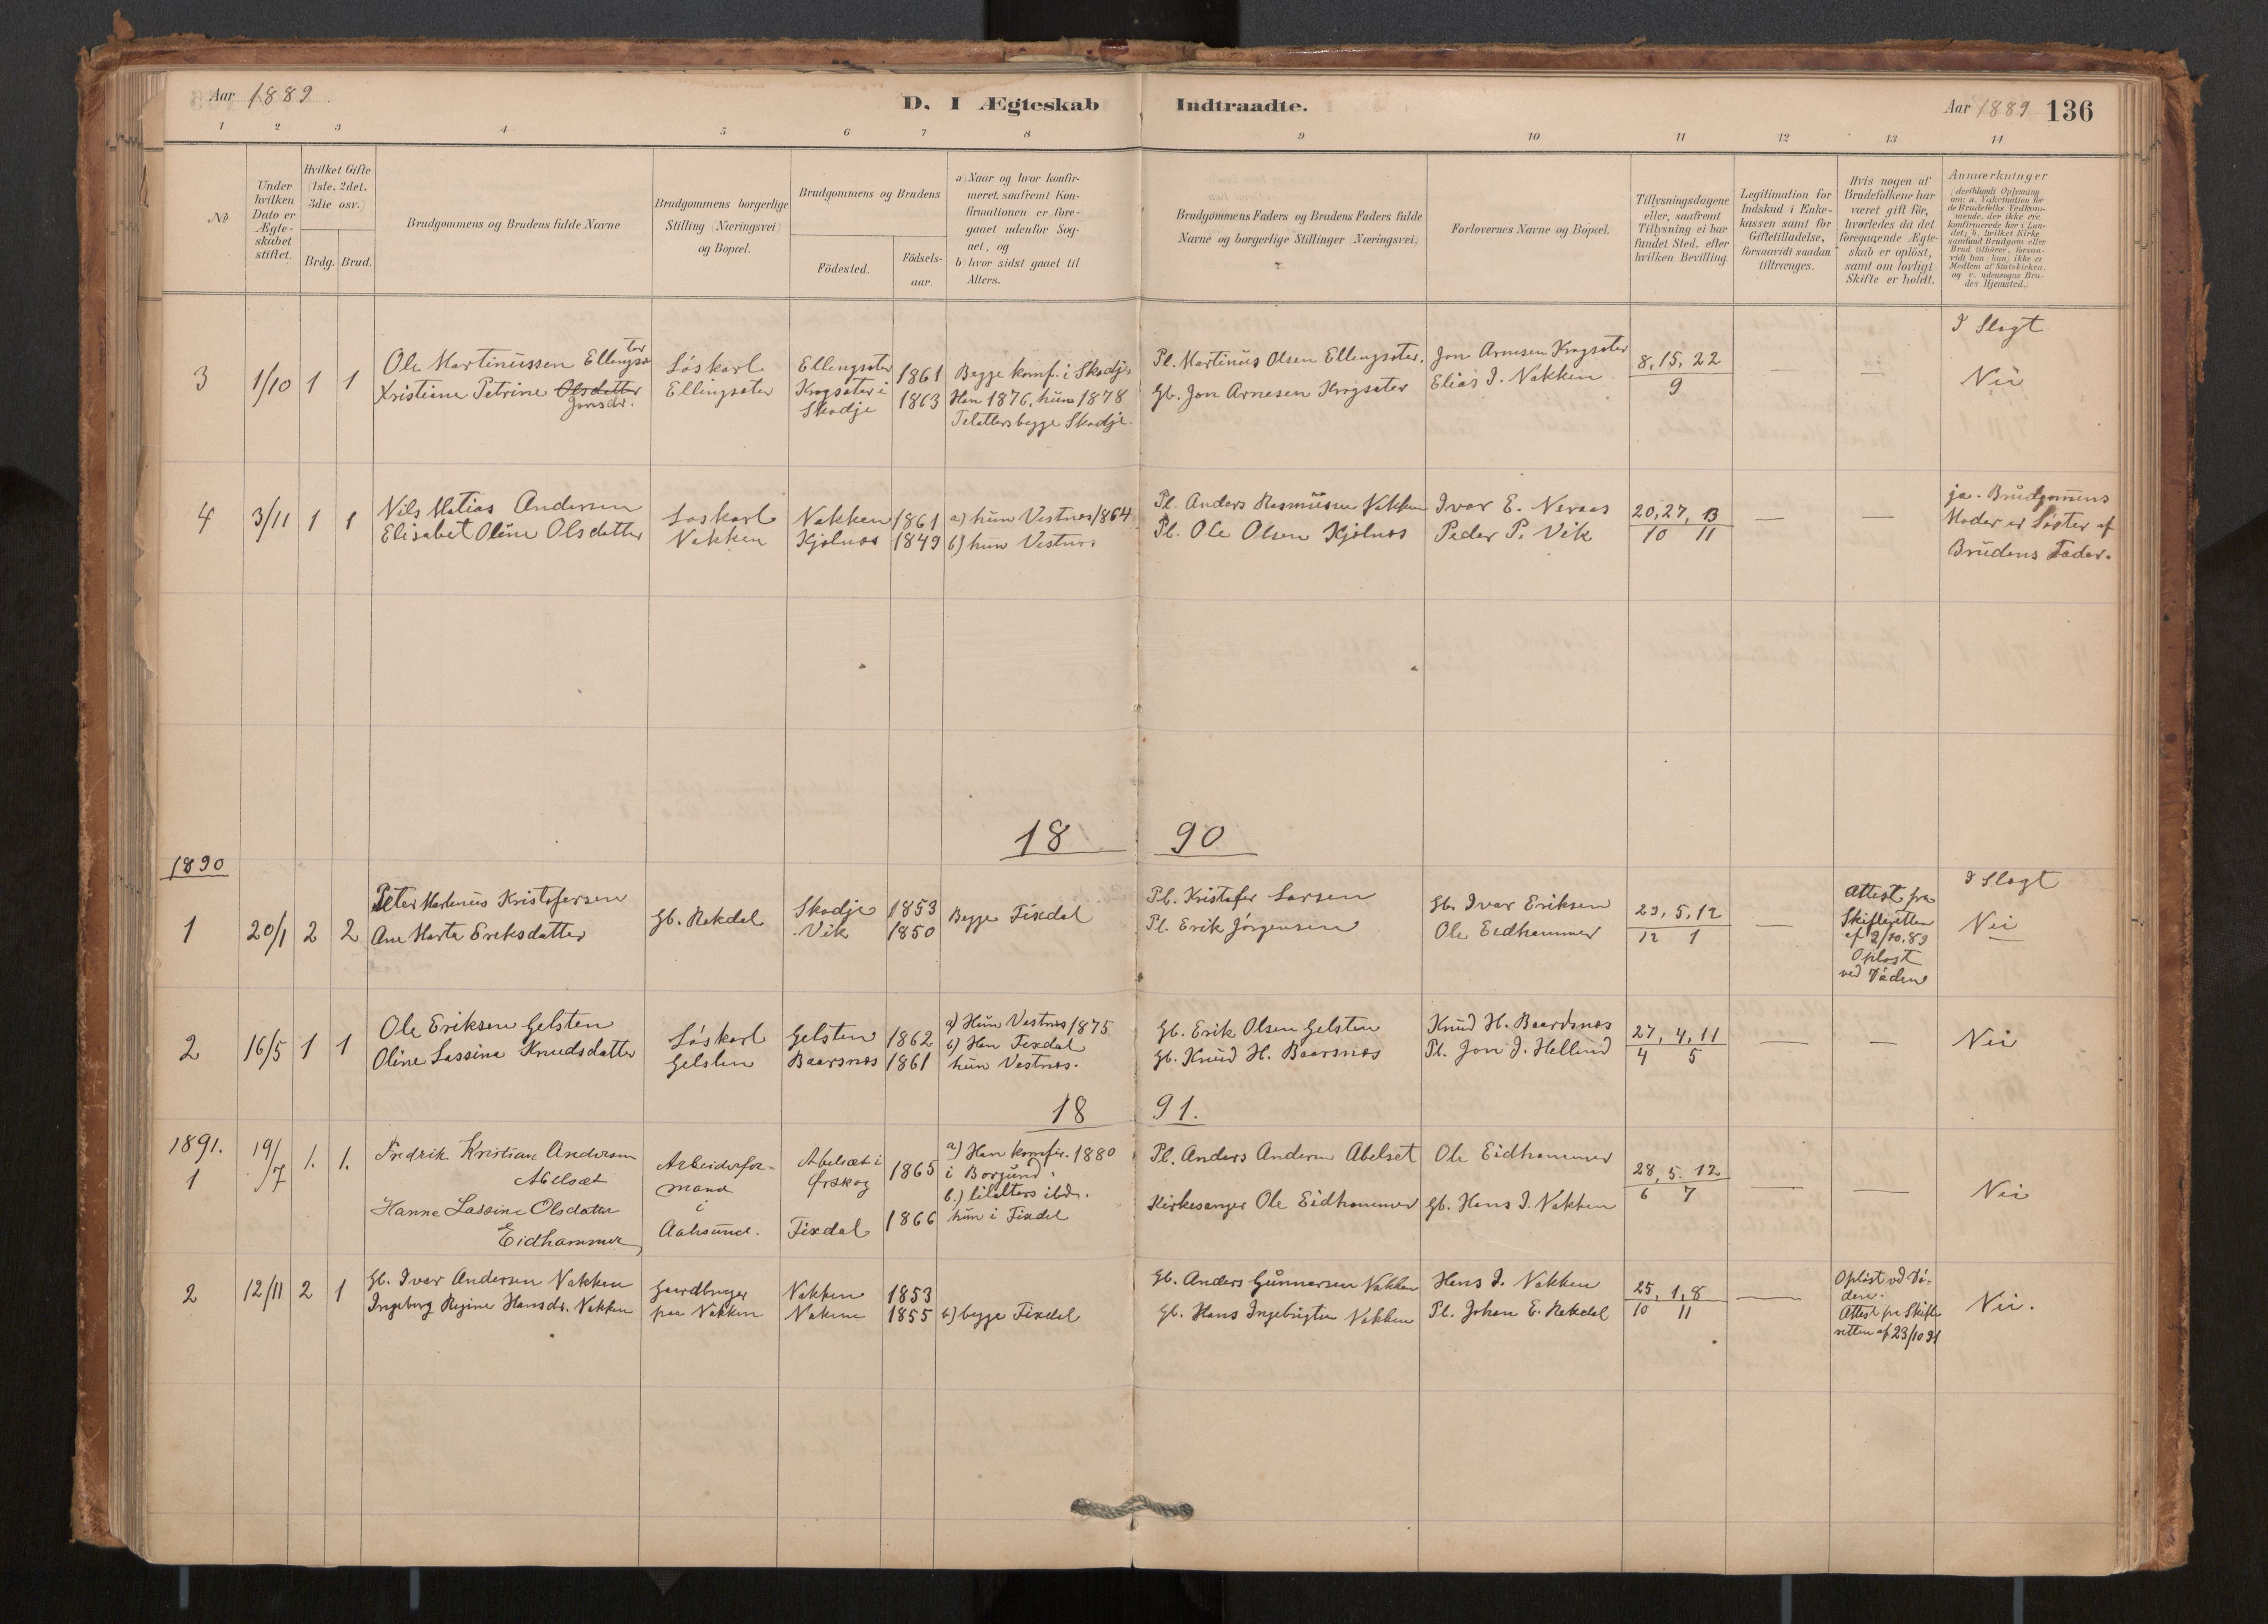 Aar 1889
D. I Ægteskab Indtraadte.
Aar 1889 136
1 2 3 4 5 6 7 8 9 10 11 12 13 14
№
Under hvilken Dato er Ægteskabet stiftet.
Hvilket Gifte (1ste, 2det, 3die osv.)
Brdg. Brud.
Brudgommens og Brudens fulde Navne
Brudgommens borgerlige Stilling (Næringsvei) og Bopæl.
Brudgommens og Brudens
Födested.
Födsels-aar.
a) Naar og hvor konfir-
meret, saafremt Kon-
firmationen er fore-
gaaet udenfor Sog-
net, og
b) hvor sidst gaaet til
Alters.
Brudgommens Faders og Brudens Faders fulde
Navne og borgerlige Stillinger (Næringsvei)
Forlovernes Navne og Bopæl.
Tillysningsdagene
eller, saafremt
Tillysning ei har
fundet Sted, efter
hvilken Bevilling
Legitimation for
Indskud i Enke-
kassen samt for
Giftetilladelse,
forsaavidt saadan
tiltrænges.
Hvis nogen af
Brudefolkene har
været gift för,
hvorledes da det
foregaaende Ægte-
skab er oplöst,
samt om lovligt
Skifte er holdt.
Anmærkninger
(deriblandt Oplysning
om: a. Vakcination for
de Brudefolks Vedkom-
mende, der ikke ere
konfirmerede her i Lan-
det; b. hvilket Kirke-
samfund Brudgom eller
Brud tilhörer, forsaa-
vidt han (hun) ikke er
Medlem af Statskirken,
og c. udensogns Bru-
des Hjemsted.)
I Slegt
3 1/10 1 1
Ole Martinussen Ellingsæter
Kristiane Petrine Olsdatter
Jonsdr.
Löskarl
Ellingsæter
Ellingsæter 1861
Krogsæter i
Skodje 1863
Begge komf. i Skodje
Han 1876, hun 1878
Tilalters begge Skodje.
Pl. Martinus Olsen Ellingsæter.
Gb. Jon Arnesen Krogsæter
Jon Arnesen Krogsæter
Elias I. Nakken
8, 15, 22
9
— — Nei
4 3/11 1 1
Nils Matias Andersen
Elisabet Oline Olsdatter
Löskarl
Nakken
Nakken 1861
Kjølnæs 1849
a) hun Vestnes 1864
b) hun Vestnes
Pl. Anders Rasmussen Nakken
Pl. Ole Olsen Kjølnæs
Ivar E. Neraas
Peder P. Vik
20, 27, 3
10 11
— —
ja. Brudgomens
Moder er Söster af
Brudens Fader.
18 90
1890
I Slegt
1 20/1 2 2
Peter Martinus Kristofersen
Ane Marta Eriksdatter
Gb. Rekdal
Skodje 1853
Vik 1850
Begge Fixdal
Pl. Kristofer Larsen
Pl. Erik Jörgensen
Gb. Ivar Eriksen
Ole Eidhammer
29, 5, 12
12 1
—
Attest fra
Skifteretten
af 2/10.89
Oplöst
ved Döden
Nei
2 16/5 1 1
Ole Eriksen Gelsten
Oline Lassine Knudsdatter
Löskarl
Gelsten
Gelsten 1862
Baarsnæs 1861
a) Hun Vestnes 1875
b) Han Fixdal
hun Vestnes.
Gb. Erik Olsen Gelsten
Gb. Knud H. Baarsnæs
Knud H. Baardsnæs
Pl. Jon J. Hellund
27, 4, 11
4 5
— — Nei
18 91.
1891.
1 19/7 1. 1.
Fredrik Kristian Andersen
Abelsæt
Hanne Lassine Olsdatter
Eidhammer
Arbeiderfor-
mand
i
Aalesund.
Abelsæt i
Ørskog 1865
Fixdal 1866
a) Han komfir. 1880
i Borgund
b.) tilalters ibd.
hun i Fixdal
Pl. Anders Andersen Abelset
Kirkesanger Ole Eidhammer
Ole Eidhammer
Gb. Hans I. Nakken
28, 5. 12
6 7
— — Nei
2 12/11 2 1
Gb. Ivar Andersen Nakken
Ingeborg Regine Hansdr. Nakken
Gaardbruger
paa Nakken
Nakken 1853
Nakene 1855
b) begge Fixdal
Gb. Anders Gunnersen Nakken
Gb. Hans Ingebrigtsen Nakken
Hans I. Nakken
Pl. Johan E. Rekdal
25, 1, 8
10 11
—
Oplöst ved Dö-
den.
Attest fra Skifte
retten af 23/10 91
Nei.